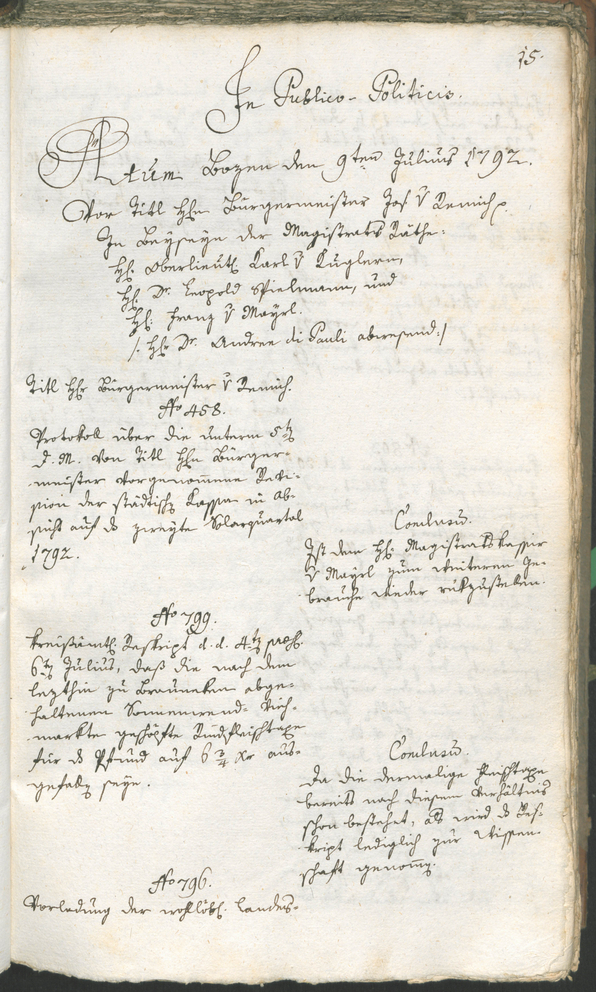 15.
In Publico-Politicis.
Actum Bozen den 9ten Julius 1792.
Vor Titl Hhn Bürgermeister Jos. v Remich p.
In Beyseyn der Magistrats Räthe:
Hh. Oberlieuth Karl v Kuglern,
Hh. Dr. Leopold Spielmann, und
Hh. Franz v Mayrl.
/: Hh Dr. Andree di Pauli abwesend :/
Titl Hhr Bürgermeister v Remich.
No 458.
Protokoll über die unterm 5ten
d. M. von Titl Hhn Bürger-
meister vorgenommene Revi-
sion der städtischen Kassa in Ab-
sicht auf das zweyte Solarquartal
1792.
Conclusum.
Ist dem Hh. Magistratskassier
v Mayrl zum weiteren Ge-
brauche wieder rükzustellen.
No 799.
Kreisämtl. Reskript d. d. 4ten praes.
6ten Julius, daß die nach dem
lezthin zu Brauneken abge-
haltenen Sonnenwend-Vieh-
markte geschöpfte Rindfleischtaxe
für das Pfund auf 6 3/4 Kr aus-
gefallen seye.
Conclusum.
Da die dermalige Fleischtaxe
bereits nach diesem Verhältniß
schon bestehet, als wird das Res-
kript lediglich zur Wissen-
schaft genommen.
No 796.
Vorladung der wohllöbl. Landes-